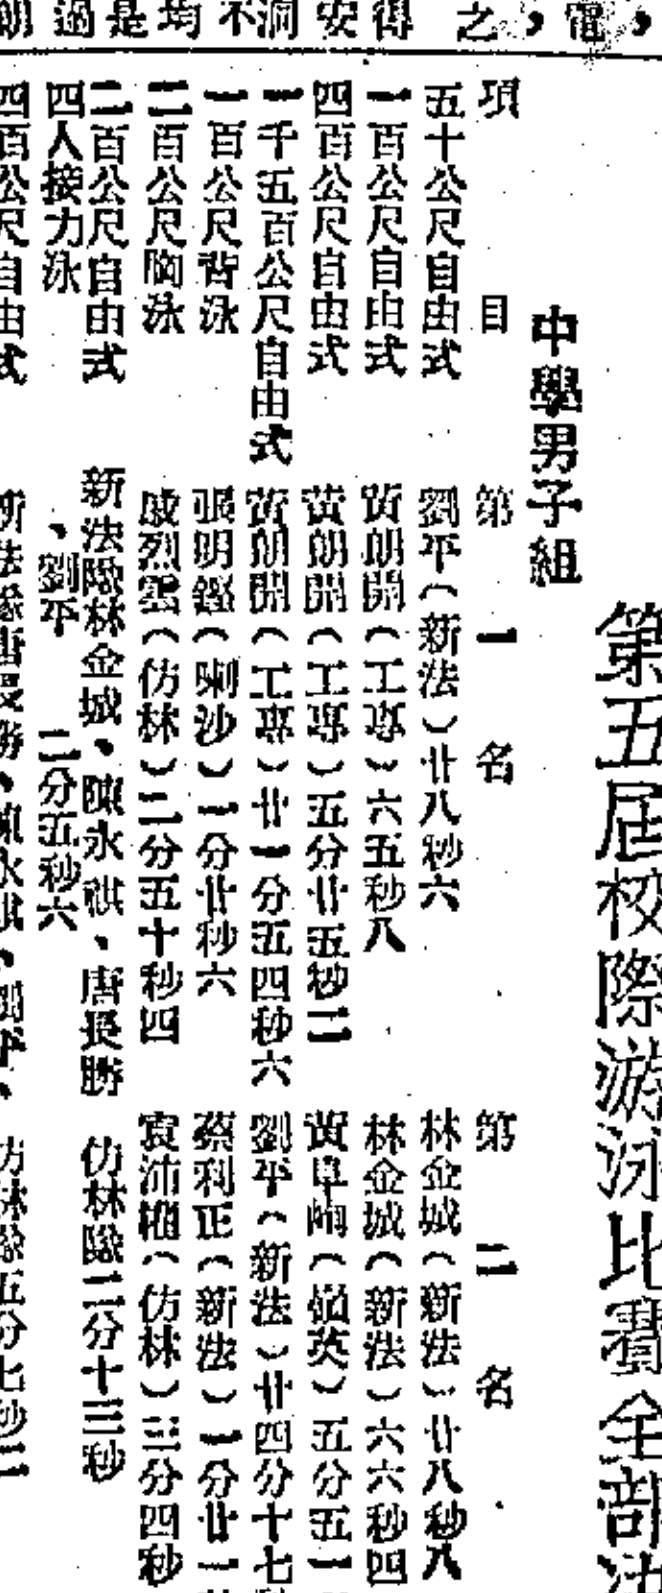 之，電，
得
安
洞
不
均
是
過
朗
第五届校際游泳比賽全部
中學男子組
項目 第一名 第二名
五十公尺自由式 劉平（新法）廿八秒六 林金城（新法）廿八秒八
一百公尺自由式 黃朗開（工專）六五秒八 林金城（新法）六六秒四
四百公尺自由式 黃朗開（工專）五分廿五秒二 黃（嶺英）五分五一
一千五百公尺自由式 黃朗開（工專）廿一分五四秒六 劉平（新法）廿四分十七秒
一百公尺背泳 張明鏗（喇沙）一分廿秒六 蔡利正（新法）一分廿一
二百公尺胸泳 成烈雲（仿林）二分五十秒四 袁沛（仿林）三分四秒
二百公尺自由式 新法隊林金城、陳永祺、唐長勝 仿林隊二分十三秒
四人接力泳 、劉平 二分五秒六
四百公尺自由式 新法隊唐長勝、陳永祺、劉平、 仿林隊五分七秒二